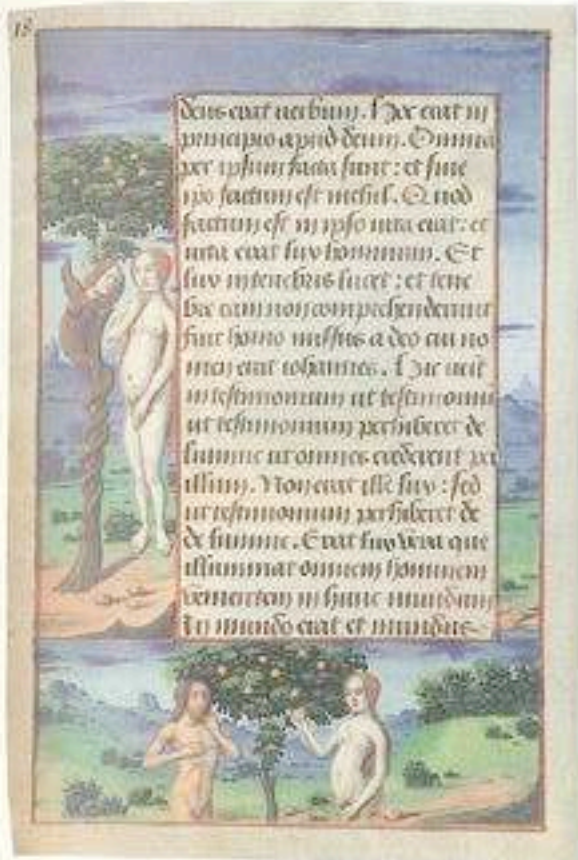 18
deus erat verbum. Hoc erat in
principio apud deum. Omnia
per ipsum facta sunt: et sine
ipso factum est nichil. Quod
factum est in ipso vita erat: et
vita erat lux hominum. Et
lux in tenebris lucet: et tene
bre eam non comprehenderunt
fuit homo missus a deo cui no
men erat iohannes. Hic venit
in testimonium ut testimoni
ut testimonium perhiberet de
lumine ut omnes crederent per
illum. Non erat ille lux: sed
ut testimonium perhiberet de
de lumine. Erat lux vera que
illuminat omnem hominem
venientem in hunc mundum
In mundo erat et mundus